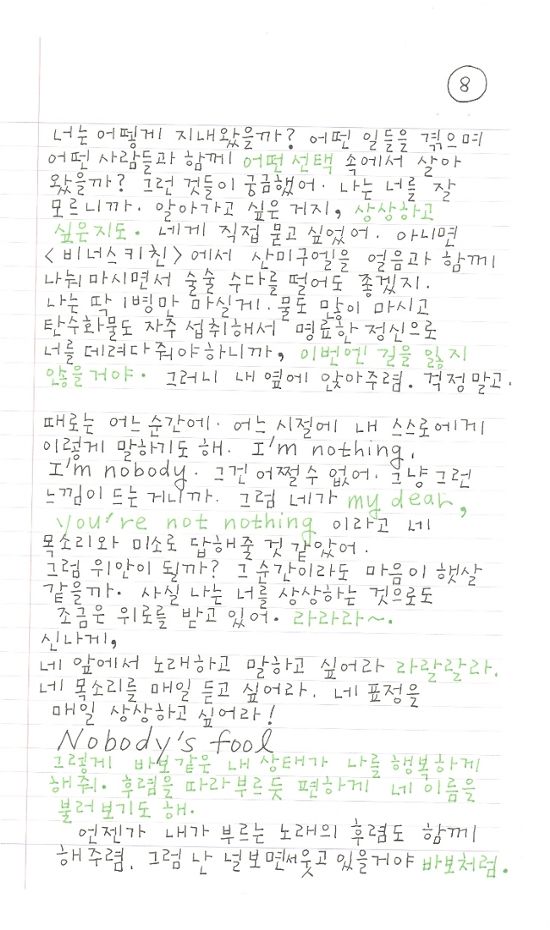 8
너는 어떻게 지내왔을까? 어떤 일들을 겪으며
어떤 사람들과 함께 어떤 선택 속에서 살아
왔을까? 그런 것들이 궁금했어. 나는 너를 잘
모르니까. 알아가고 싶은 거지, 상상하고
싶은지도. 네게 직접 묻고 싶었어. 아니면
<비너스키친>에서 산미구엘을 얼음과 함께
나눠마시면서 술술 수다를 떨어도 좋겠지.
나는 딱 1병만 마실게. 물도 많이 마시고
탄수화물도 자주 섭취해서 명료한 정신으로
너를 데려다줘야하니까, 이번엔 길을 잃지
않을거야. 그러니 내 옆에 앉아주렴. 걱정말고.
때로는 어느 순간에. 어느 시절에 내 스스로에게
이렇게 말하기도 해. I'm nothing,
I'm nobody. 그건 어쩔수 없어. 그냥 그런
느낌이 드는거니까. 그럼 네가 my dear,
you're not nothing 이라고 네
목소리와 미소로 답해줄 것 같았어.
그럼 위안이 될까? 그 순간이라도 마음이 햇살
같을까. 사실 나는 너를 상상하는 것으로도
조금은 위로를 받고 있어. 라라라~.
신나게,
네 앞에서 노래하고 말하고 싶어라 라랄랄라.
네 목소리를 매일 듣고 싶어라. 네 표정을
매일 상상하고 싶어라!
Nobody's fool
그렇게 바보같은 내 상태가 나를 행복하게
해줘. 후렴을 따라부르듯 편하게 네 이름을
불러보기도 해.
언젠가 내가 부르는 노래의 후렴도 함께
해주렴. 그럼 난 널 보면서 웃고 있을거야 바보처럼.